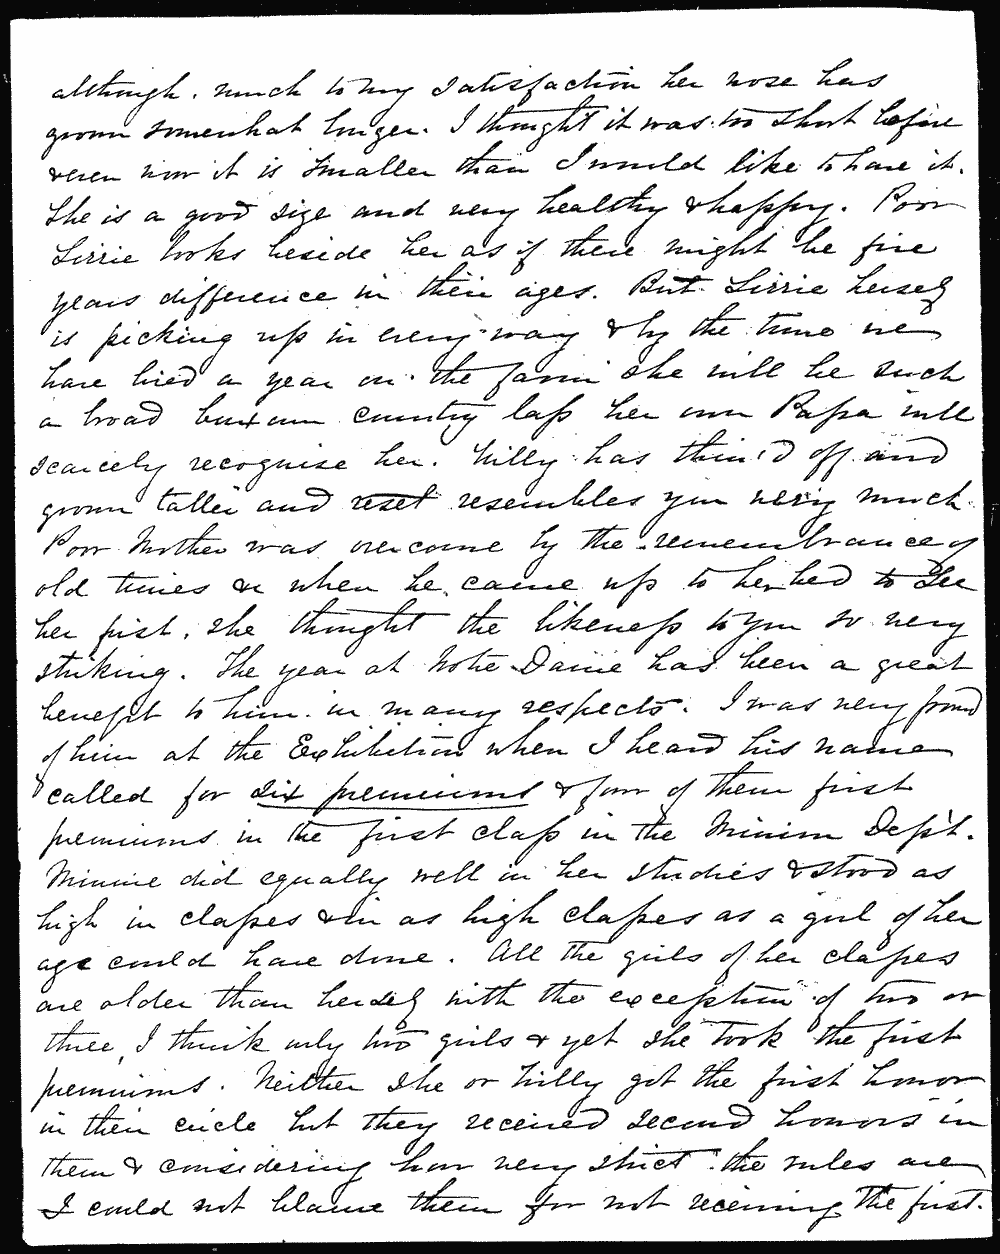 although, much to my satisfaction her nose has
grown somewhat longer. I thought it was too short before
& even now it is smaller than I would like to have it.
She is a good size and very healthy & happy. Poor
Lizzie looks beside her as if there might be five
years difference in their ages. But Lizzie herself
is picking up in every way & by the time we
have lived a year on the farm she will be such
a broad buxum country lass her own Papa will
scarcely recognise her. Willy has thin'd off and
grown taller and reset resembles you very much.
Poor Mother was overcome by the remembrance of
old times &c when he came up to her bed to see
her first, she thought the likeness to you so very
striking. The year at Notre Dame has been a great
benefit to him in many respects. I was very proud
of him at the Exhibition when I heard his name
called for six premiums & four of them first
premiums in the first class in the Minim Dept.
Minnie did equally well in her studies & stood as
high in classes & in as high classes as a girl of her
age could have done. All the girls of her classes
are older than herself with the exception of two or
three, I think only two girls & yet she took the first
premiums. Neither she or Willy got the first honor
in their circle but they received second honors in
them & considering how very strict the rules are
I could not blame them for not receiving the first.